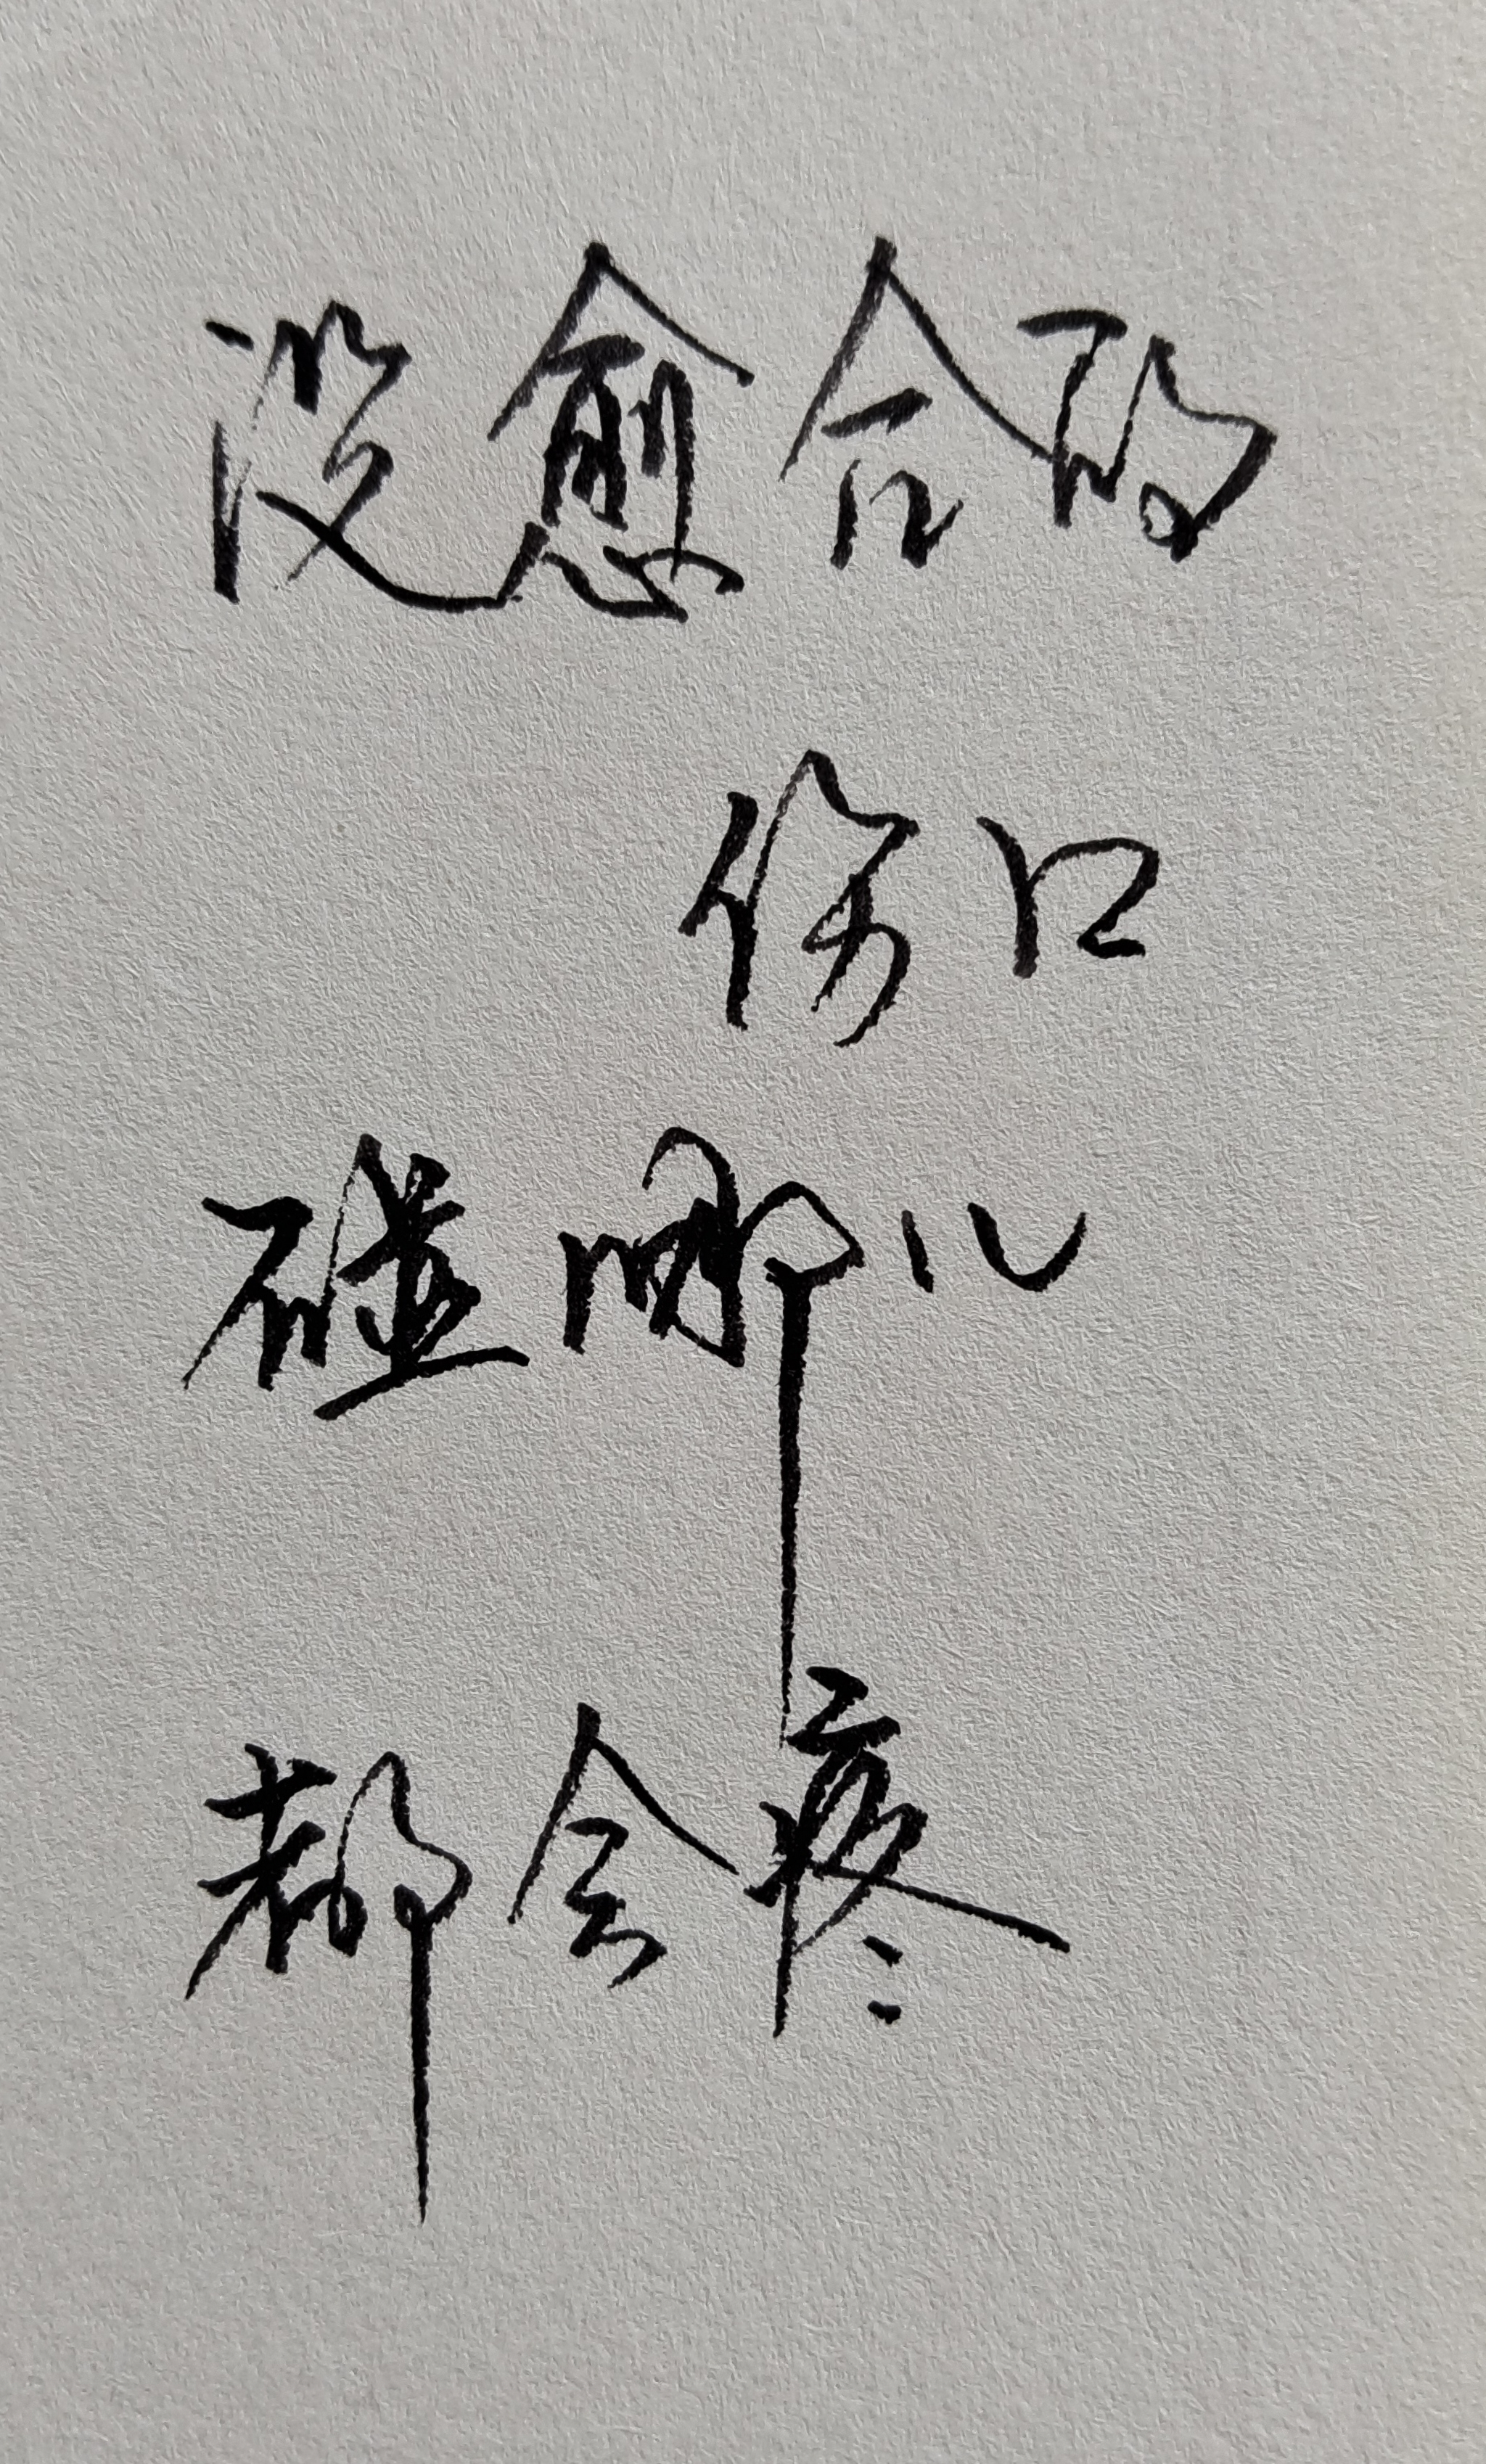 没愈合的
伤口
碰哪儿
都会疼